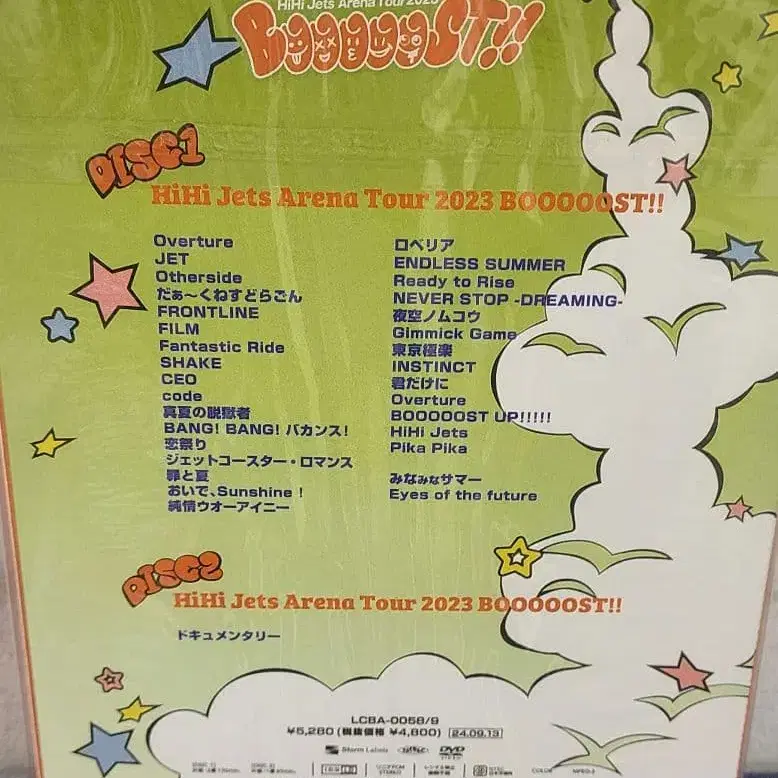 HiHi Jets Arena Tour 2023
BOOOOOST!!
DISC1
HiHi Jets Arena Tour 2023 BOOOOOST!!
Overture
JET
Otherside
だぁ〜くねすどらごん
FRONTLINE
FILM
Fantastic Ride
SHAKE
CEO
code
真夏の脱獄者
BANG! BANG! バカンス!
恋祭り
ジェットコースター・ロマンス
罪と夏
おいで、Sunshine!
純情ウオーアイニー
ロベリア
ENDLESS SUMMER
Ready to Rise
NEVER STOP -DREAMING-
夜空ノムコウ
Gimmick Game
東京極楽
INSTINCT
君だけに
Overture
BOOOOOST UP!!!!!
HiHi Jets
Pika Pika
みなみなサマー
Eyes of the future
DISC2
HiHi Jets Arena Tour 2023 BOOOOOST!!
ドキュメンタリー
LCBA-0058/9
¥5,280 (税抜価格 ¥4,800) 24.09.13
Storm Labels DVD
COLOR MPEG-2